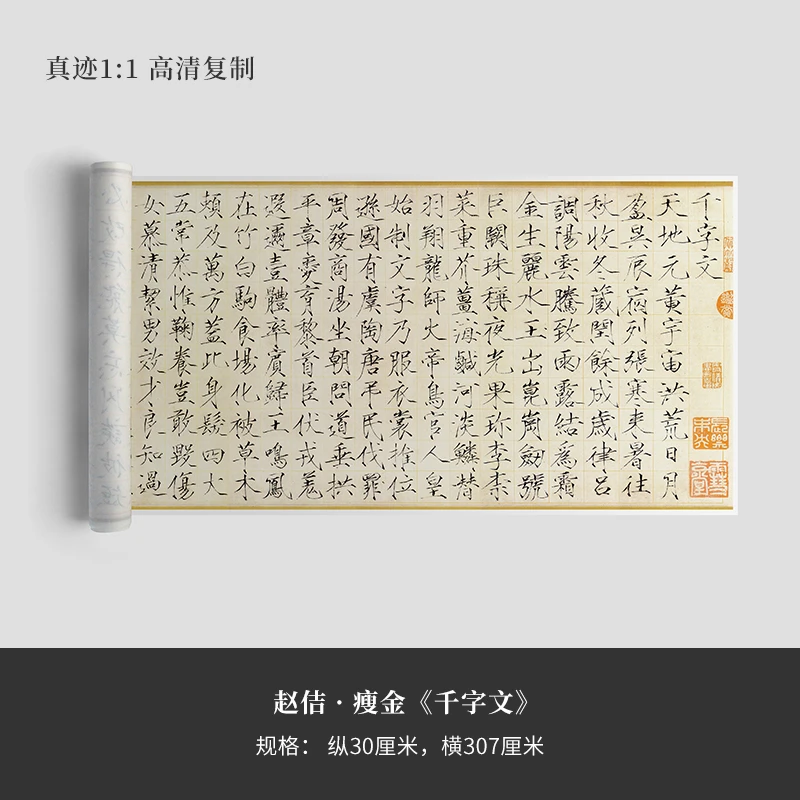 真迹1:1 高清复制
千字文
天地元黃宇宙洪荒日月
盈昃辰宿列張寒来暑往
秋收冬藏閏餘成歲律呂
調陽雲騰致雨露結爲霜
金生麗水玉出崑崗劒號
巨闕珠稱夜光果珎李柰
菜重芥薑海鹹河淡鱗潛
羽翔龍師火帝鳥官人皇
始制文字乃服衣裳推位
遜國有虞陶唐弔民伐罪
周發商湯坐朝問道垂拱
平章愛育黎首臣伏戎羗
遐邇壹體率賓歸王鳴鳳
在竹白駒食場化被草木
頼及萬方蓋此身髮四大
五常恭惟鞠養豈敢毀傷
女慕清潔男效才良知過
赵佶·瘦金《千字文》
规格： 纵30厘米，横307厘米